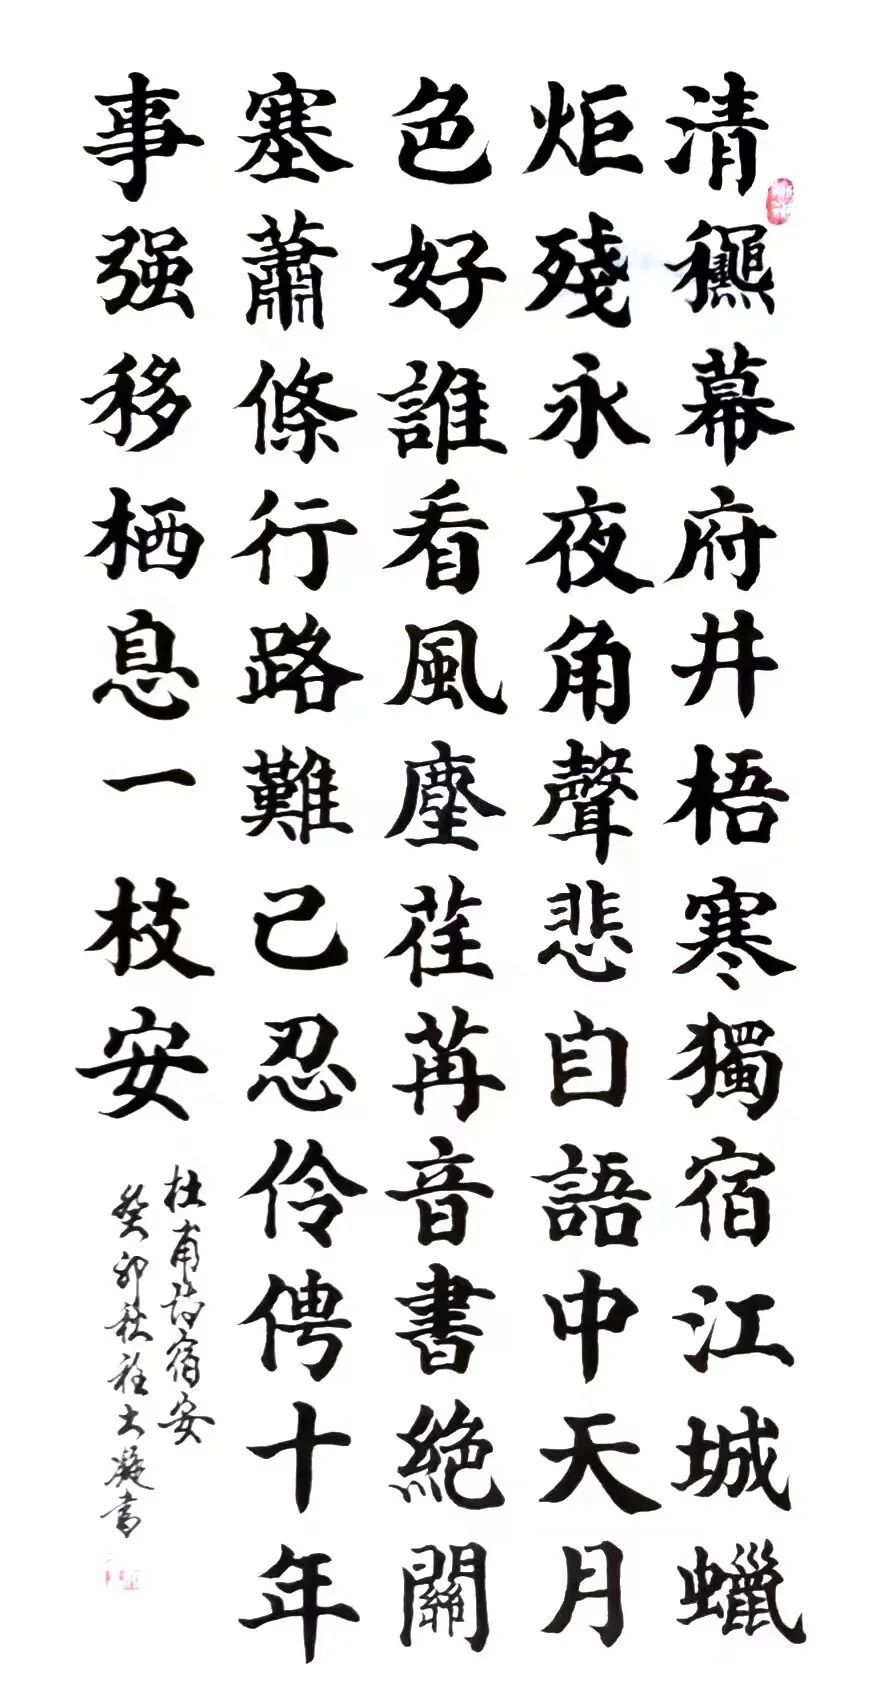 清龝幕府井梧寒獨宿江城蠟
炬殘永夜角聲悲自語中天月
色好誰看風塵荏苒音書絶關
塞蕭條行路難己忍伶俜十年
事强移栖息一枝安
杜甫詩宿安
癸卯秋程大凝書